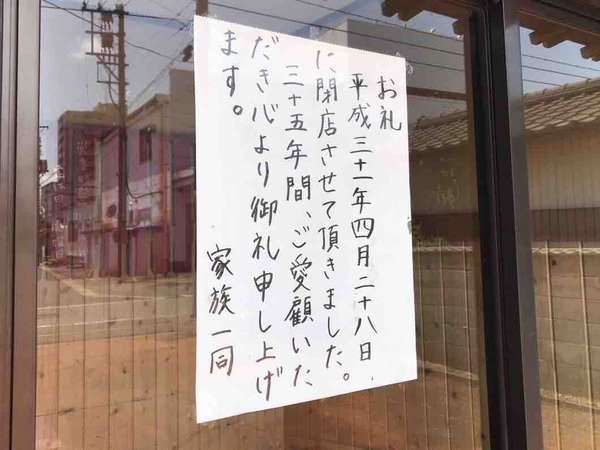 お礼
平成三十一年四月二十八日
に閉店させて頂きました。
三十五年間、ご愛顧いた
だき心より御礼申し上げ
ます。
家族一同